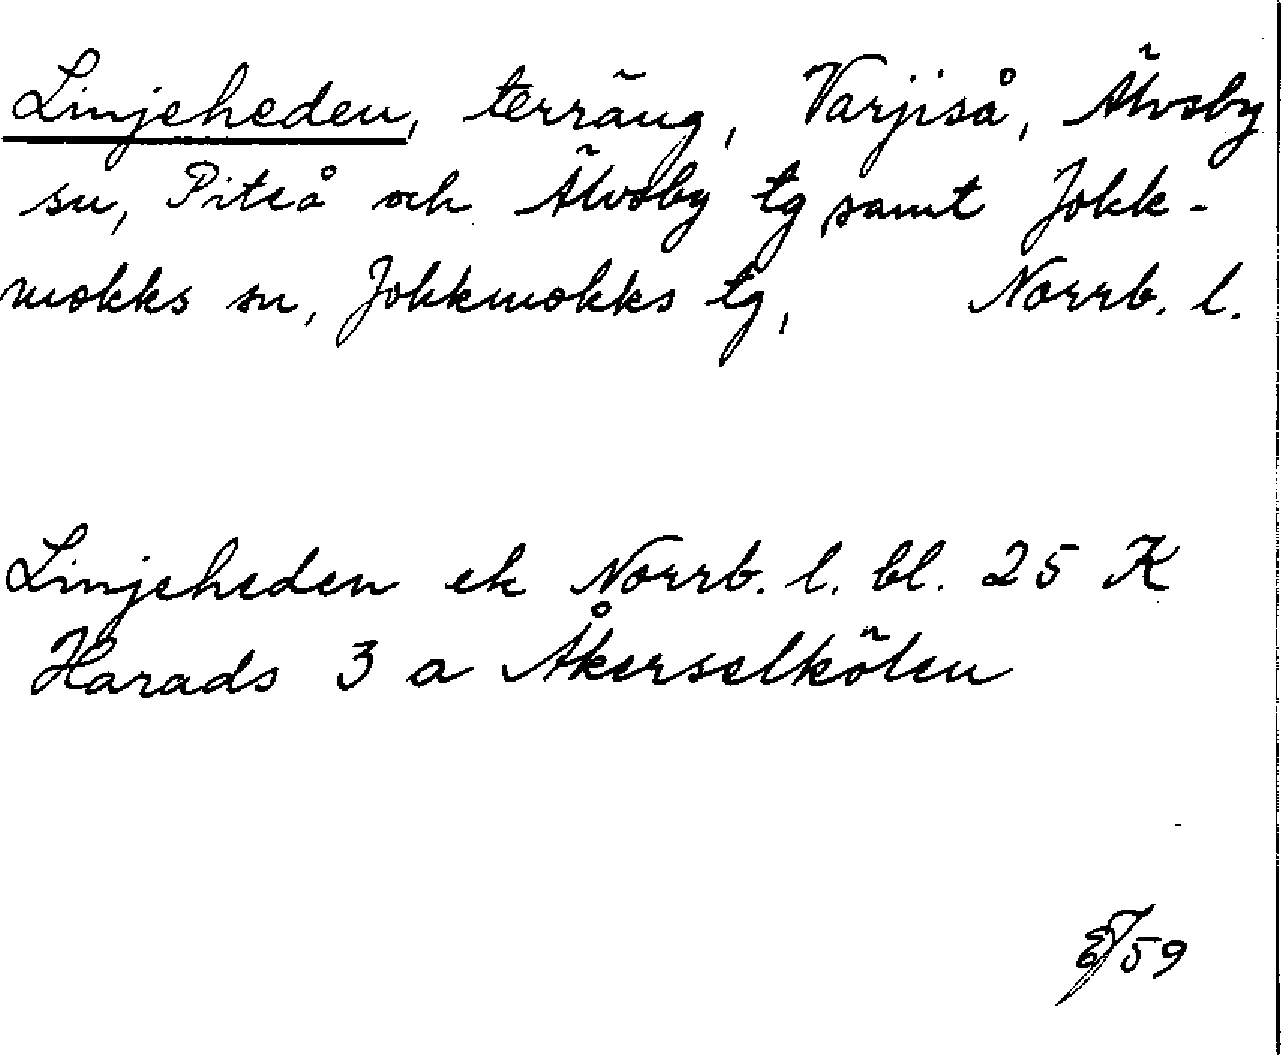 Linjeheden, terräng, Varjiså, Älvsby
sn, Piteå och Älvsby tg samt Jokk-
mokks sn, Jokkmokks tg, Norrb. l.
Linjeheden ek Norrb. l. bl. 25 K
Harads 3 a Åkerselkölen
59